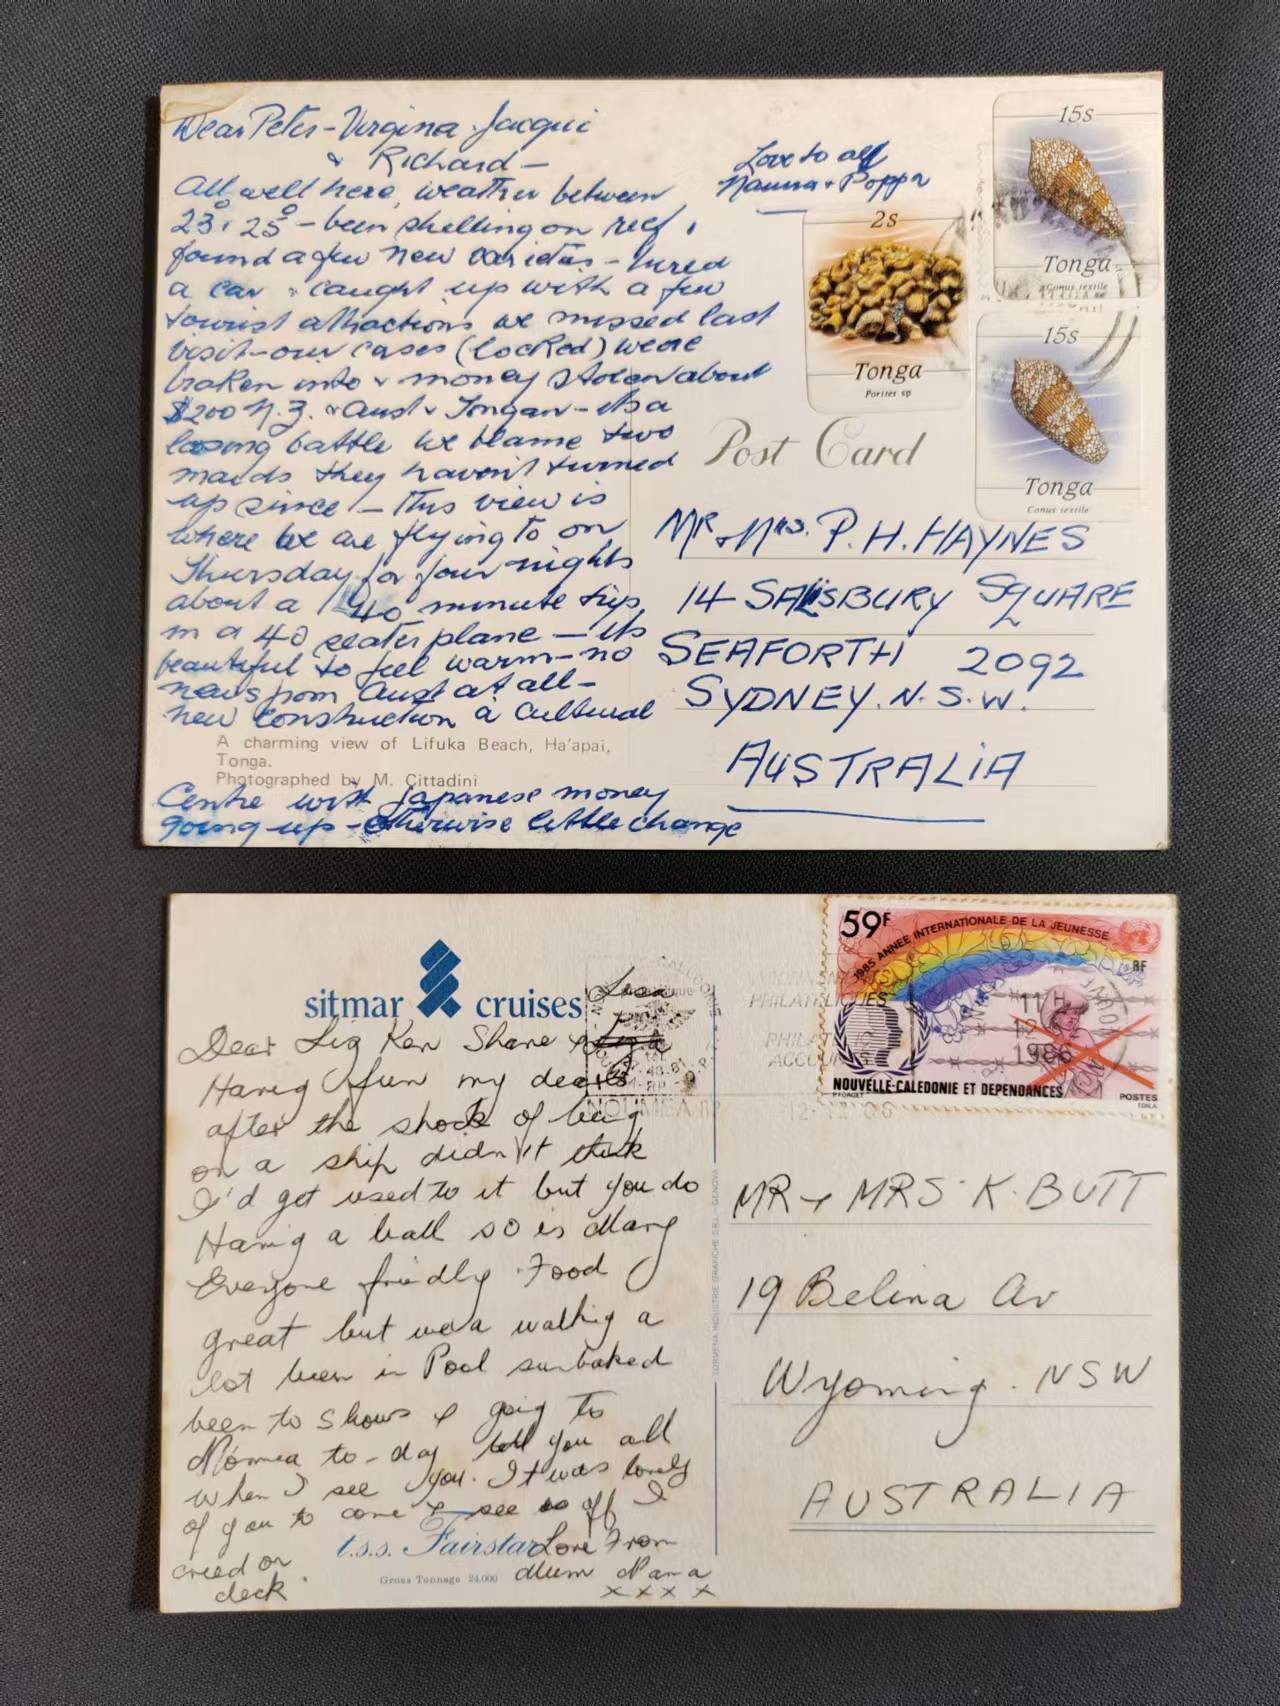 Dear Peter-Virgina-Jacqui
& Richard-
All well here, weather between
23° 25° - been shelling on reef,
found a few new varieties - hired
a car & caught up with a few
tourist attractions we missed last
visit - our cases (locked) were
broken into & money stolen about
$200 N.Z. & Aust & Tongan - its a
losing battle we blame two
maids they haven't turned
up since - This view is
where we are flying to on
Thursday for four nights
about a 40 minute trip
in a 40 seater plane - its
beautiful to feel warm - no
news from Aust at all -
new construction a Cultural
A charming view of Lifuka Beach, Ha'apai,
Tonga.
Photographed by M. Cittadini
Centre with Japanese money
going up - otherwise little change
Love to all
Nanna & Poppa
15s
Tonga
Conus textile
2s
Tonga
Porites sp
15s
Tonga
Conus textile
Post Card
MR & Mrs. P. H. HAYNES
14 SALISBURY SQUARE
SEAFORTH 2092
SYDNEY. N.S.W.
AUSTRALIA
sitmar cruises
Dear Liz Ken Shane &
Lisa
Having fun my dears
after the shock of being
on a ship didn't think
I'd get used to it but you do
Having a ball so is Mary
Everyone friendly Food
great but we a walking a
lot been in Pool sunbaked
been to shows & going to
Nómea to-day tell you all
when I see you. It was lovely
of you to come & see us off I
cried on
deck.
t.s.s. Fairstar
Gross Tonnage 24.000
Love From
Mum Nana
x x x x
TORMENA INDUSTRIE GRAFICHE S.R.L. - GENOVA
59F
1985 ANNEE INTERNATIONALE DE LA JEUNESSE
RF
NOUVELLE-CALEDONIE ET DEPENDANCES
POSTES
P.FORGET
EDILA
11 H
12
1986
PHILATELIQUES
NOUMEA RP
MR & MRS. K. BUTT
19 Belina Av
Wyoming. NSW
AUSTRALIA